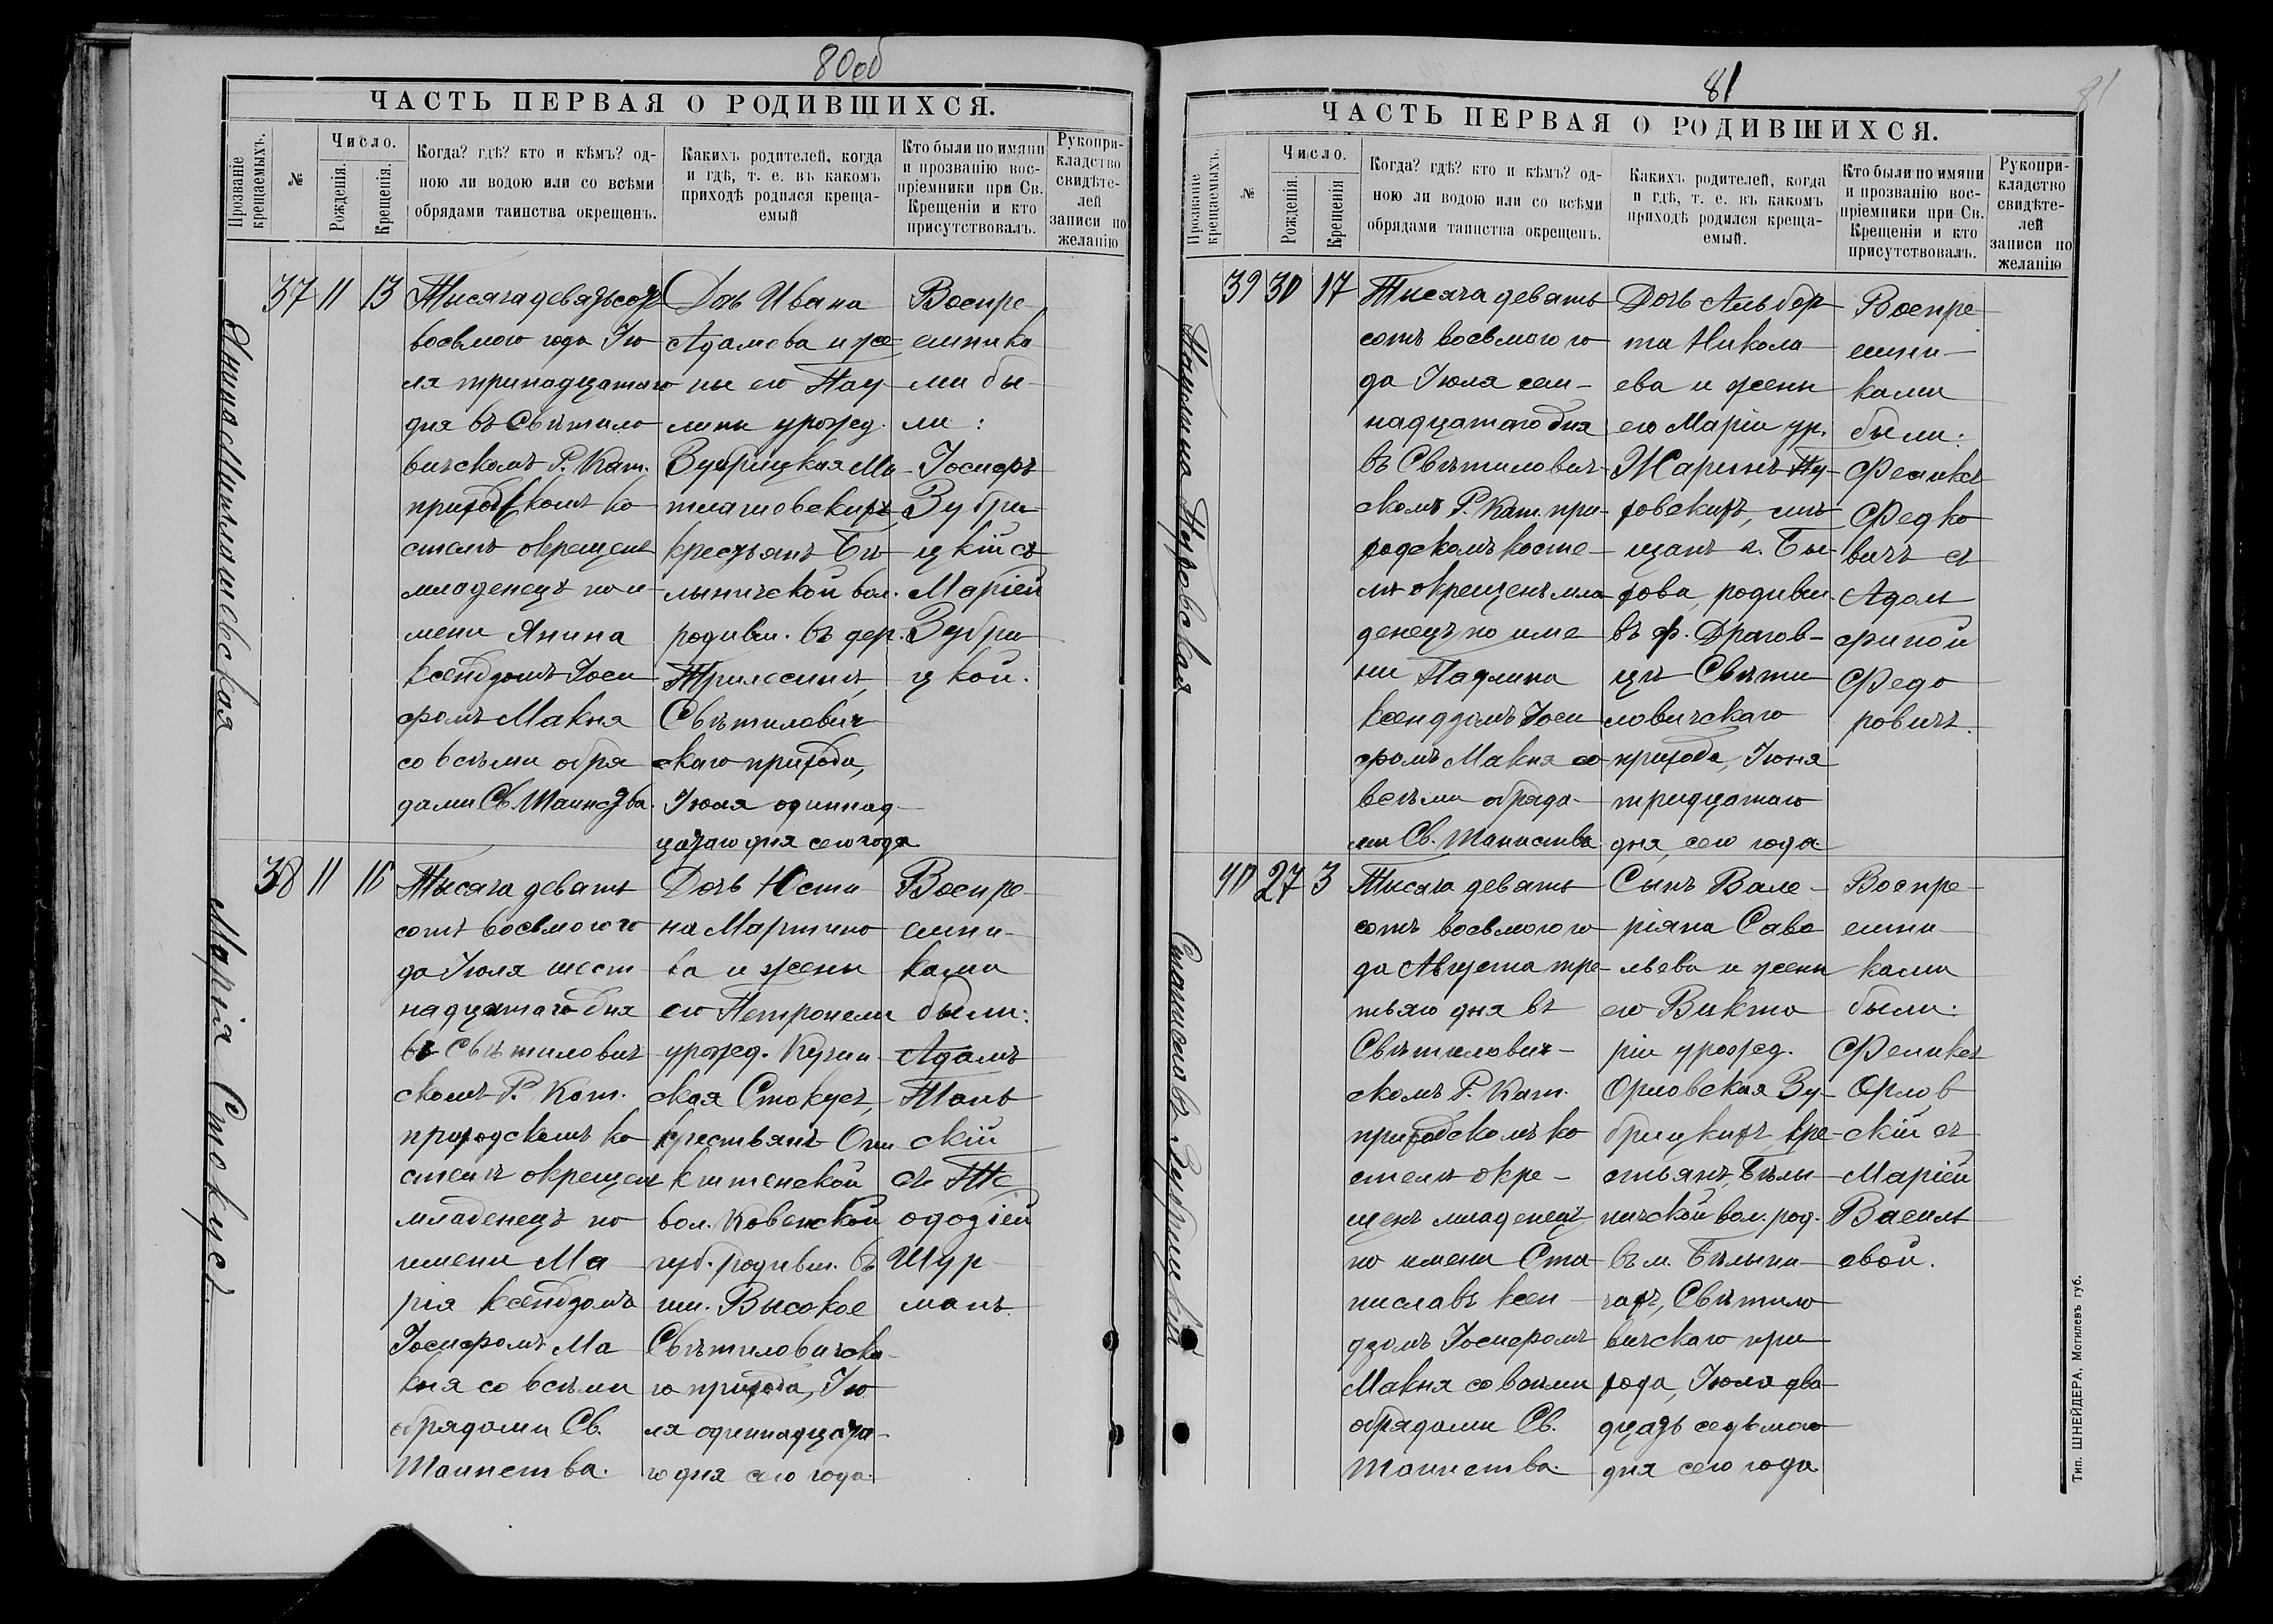 80об
ЧАСТЬ ПЕРВАЯ О РОДИВШИХСЯ.
Прозваніе крещаемыхъ.
№
Число.
Рожденія.
Крещенія.
Когда? гдѣ? кто и кѣмъ? од-
ною ли водою или со всѣми
обрядами таинства окрещенъ.
Какихъ родителей, когда
и гдѣ, т. е. въ какомъ
приходѣ родился креща-
емый
Кто были по имяни
и прозванію вос-
пріемники при Св.
Крещеніи и кто
присутствовалъ.
Рукопри-
кладство
свидѣте-
лей
записи по
желанію
37 11 13
Тысяча девятьсотъ
восьмого года Ію
ля тринадцатаго
дня въ Свѣтило
вичскомъ Р. Кат.
приходскомъ ко
стелѣ окрещенъ
младенецъ по и-
мени Янина
ксендзомъ Іоси
фомъ Макня
со всѣми обря
дами Св. Таинства.
Дочь Ивана
Адамова и же
ны его Пау
лины урожд.
Зубрицкая Ми
тлашевскихъ
крестьянъ Бѣ
лыничской вол.
родивш. въ дер.
Трилесинѣ,
Свѣтилович
скаго прихода,
Іюля одиннад-
цатаго дня сего года
Воспре
емника
ми бы-
ли:
Іосифъ
Зубри
цкій съ
Маріей
Зубри
цкой.
38 11 16
Тысяча девять
сотъ восьмого го
да Іюля шест
надцатаго дня
въ Свѣтилович
скомъ Р. Кат.
приходскомъ ко
стелѣ окрещенъ
младенецъ по
имени Ма
рія ксендзомъ
Іосифомъ Ма
кня со всѣми
обрядами Св.
Таинства.
Дочь Юсти
на Мартино
ва и жены
его Петронели
урожд. Кучин
ская Стокусъ,
крестьянъ Они
кштенской
вол. Ковенской
губ. родивш. въ
им. Высокое
Свѣтиловичска-
го прихода, Ію
ля одиннадцата-
го дня сего года.
Воспре-
емни-
ками
были:
Адамъ
Тань
скій
съ Те
одозіей
Шур
манъ
Марія Стокусъ.
81
81
ЧАСТЬ ПЕРВАЯ О РОДИВШИХСЯ.
Прозваніе крещаемыхъ.
№
Число.
Рожденія.
Крещенія
Когда? гдѣ? кто и кѣмъ? од-
ною ли водою или со всѣми
обрядами таинства окрещенъ.
Какихъ родителей, когда
и гдѣ, т. е. въ какомъ
приходѣ родился креща-
емый.
Кто были по имяни
и прозванію вос-
пріемники при Св.
Крещеніи и кто
присутствовалъ.
Рукопри-
кладство
свидѣте-
лей
записи по
желанію
39 30 17
Тысяча девять
сотъ восьмого го
да Іюля сем-
надцатаго дня
въ Свѣтилович
скомъ Р. Кат. при-
ходскомъ косте-
лѣ окрещенъ мла
денецъ по име
ни Паулина
ксендзомъ Іоси
фомъ Макня со
всѣми обряда-
ми Св. Таинства
Дочь Альбер
та Никола
ева и жены
его Маріи ур.
щанъ г. Бы-
хова, родивш.
въ ф. Драгов-
цѣ Свѣти
ловичскаго
прихода, Іюня
тридцатаго
дня, сего года.
Воспре
емни-
ками
были:
Феликсъ
Федко
вичъ съ
Адоль
финой
Федо
ровичъ.
40 27 3
Тысяча девять
сотъ восьмого го
да Августа тре-
тьяго дня въ
Свѣтилович-
скомъ Р. Кат.
приходскомъ ко
стелѣ окре-
щенъ младенецъ
по имени Ста
ниславъ ксен
дзомъ Іосифомъ
Макня со всѣми
обрядами Св.
Таинства.
Сынъ Вале-
ріяна Саве
льева и жены
его Викто
ріи урожд.
Орловская Зу-
брицкихъ, кре-
стьянъ, Бѣлы-
ничской вол. род.
въ м. Бѣлыни-
чахъ, Свѣтило
вичскаго при
хода, Іюля два
дцать седьмого
дня сего года
Воспре-
емни
ками
были:
Феликсъ
Орлов
скій съ
Маріей
Василь
евой.
Станиславъ Зубрицкій
Тип. ШНЕЙДЕРА, Могилевъ губ.